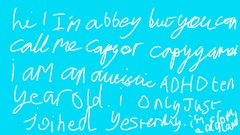 hi! I'm abbey but you can
call me capy or capygamer
i am an autistic ADHD ten
year old. i only just
joined yesterday. i'm from